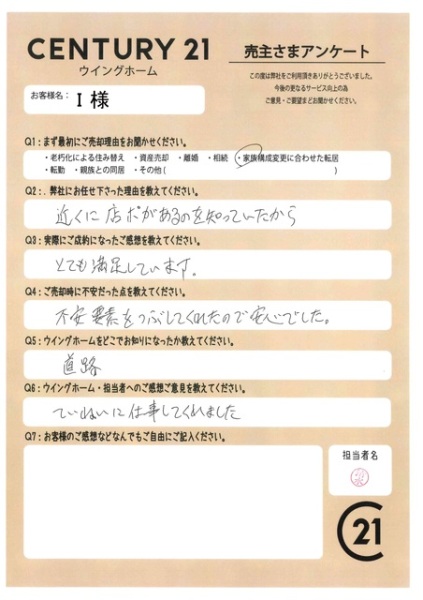 CENTURY 21
ウイングホーム
売主さまアンケート
この度は弊社をご利用頂きありがとうございました。
今後の更なるサービス向上の為
ご意見・ご要望までお聞かせください。
お客様名： I 様
Q1：まず最初にご売却理由をお聞かせください。
・老朽化による住み替え ・資産売却 ・離婚 ・相続 ・家族構成変更に合わせた転居
・転勤 ・親族との同居 ・その他（ ）
Q2：. 弊社にお任せ下さった理由を教えてください。
近くに店ポがあるのを知っていたから
Q3：実際にご成約になったご感想を教えてください。
とても満足しています。
Q4：ご売却時に不安だった点を教えてください。
不安要素をつぶしてくれたので安心でした。
Q5：ウイングホームをどこでお知りになったか教えてください。
道路
Q6：ウイングホーム・担当者へのご感想ご意見を教えてください。
ていねいに仕事してくれました
Q7：お客様のご感想などなんでもご自由にご記入ください。
担当者名
C21